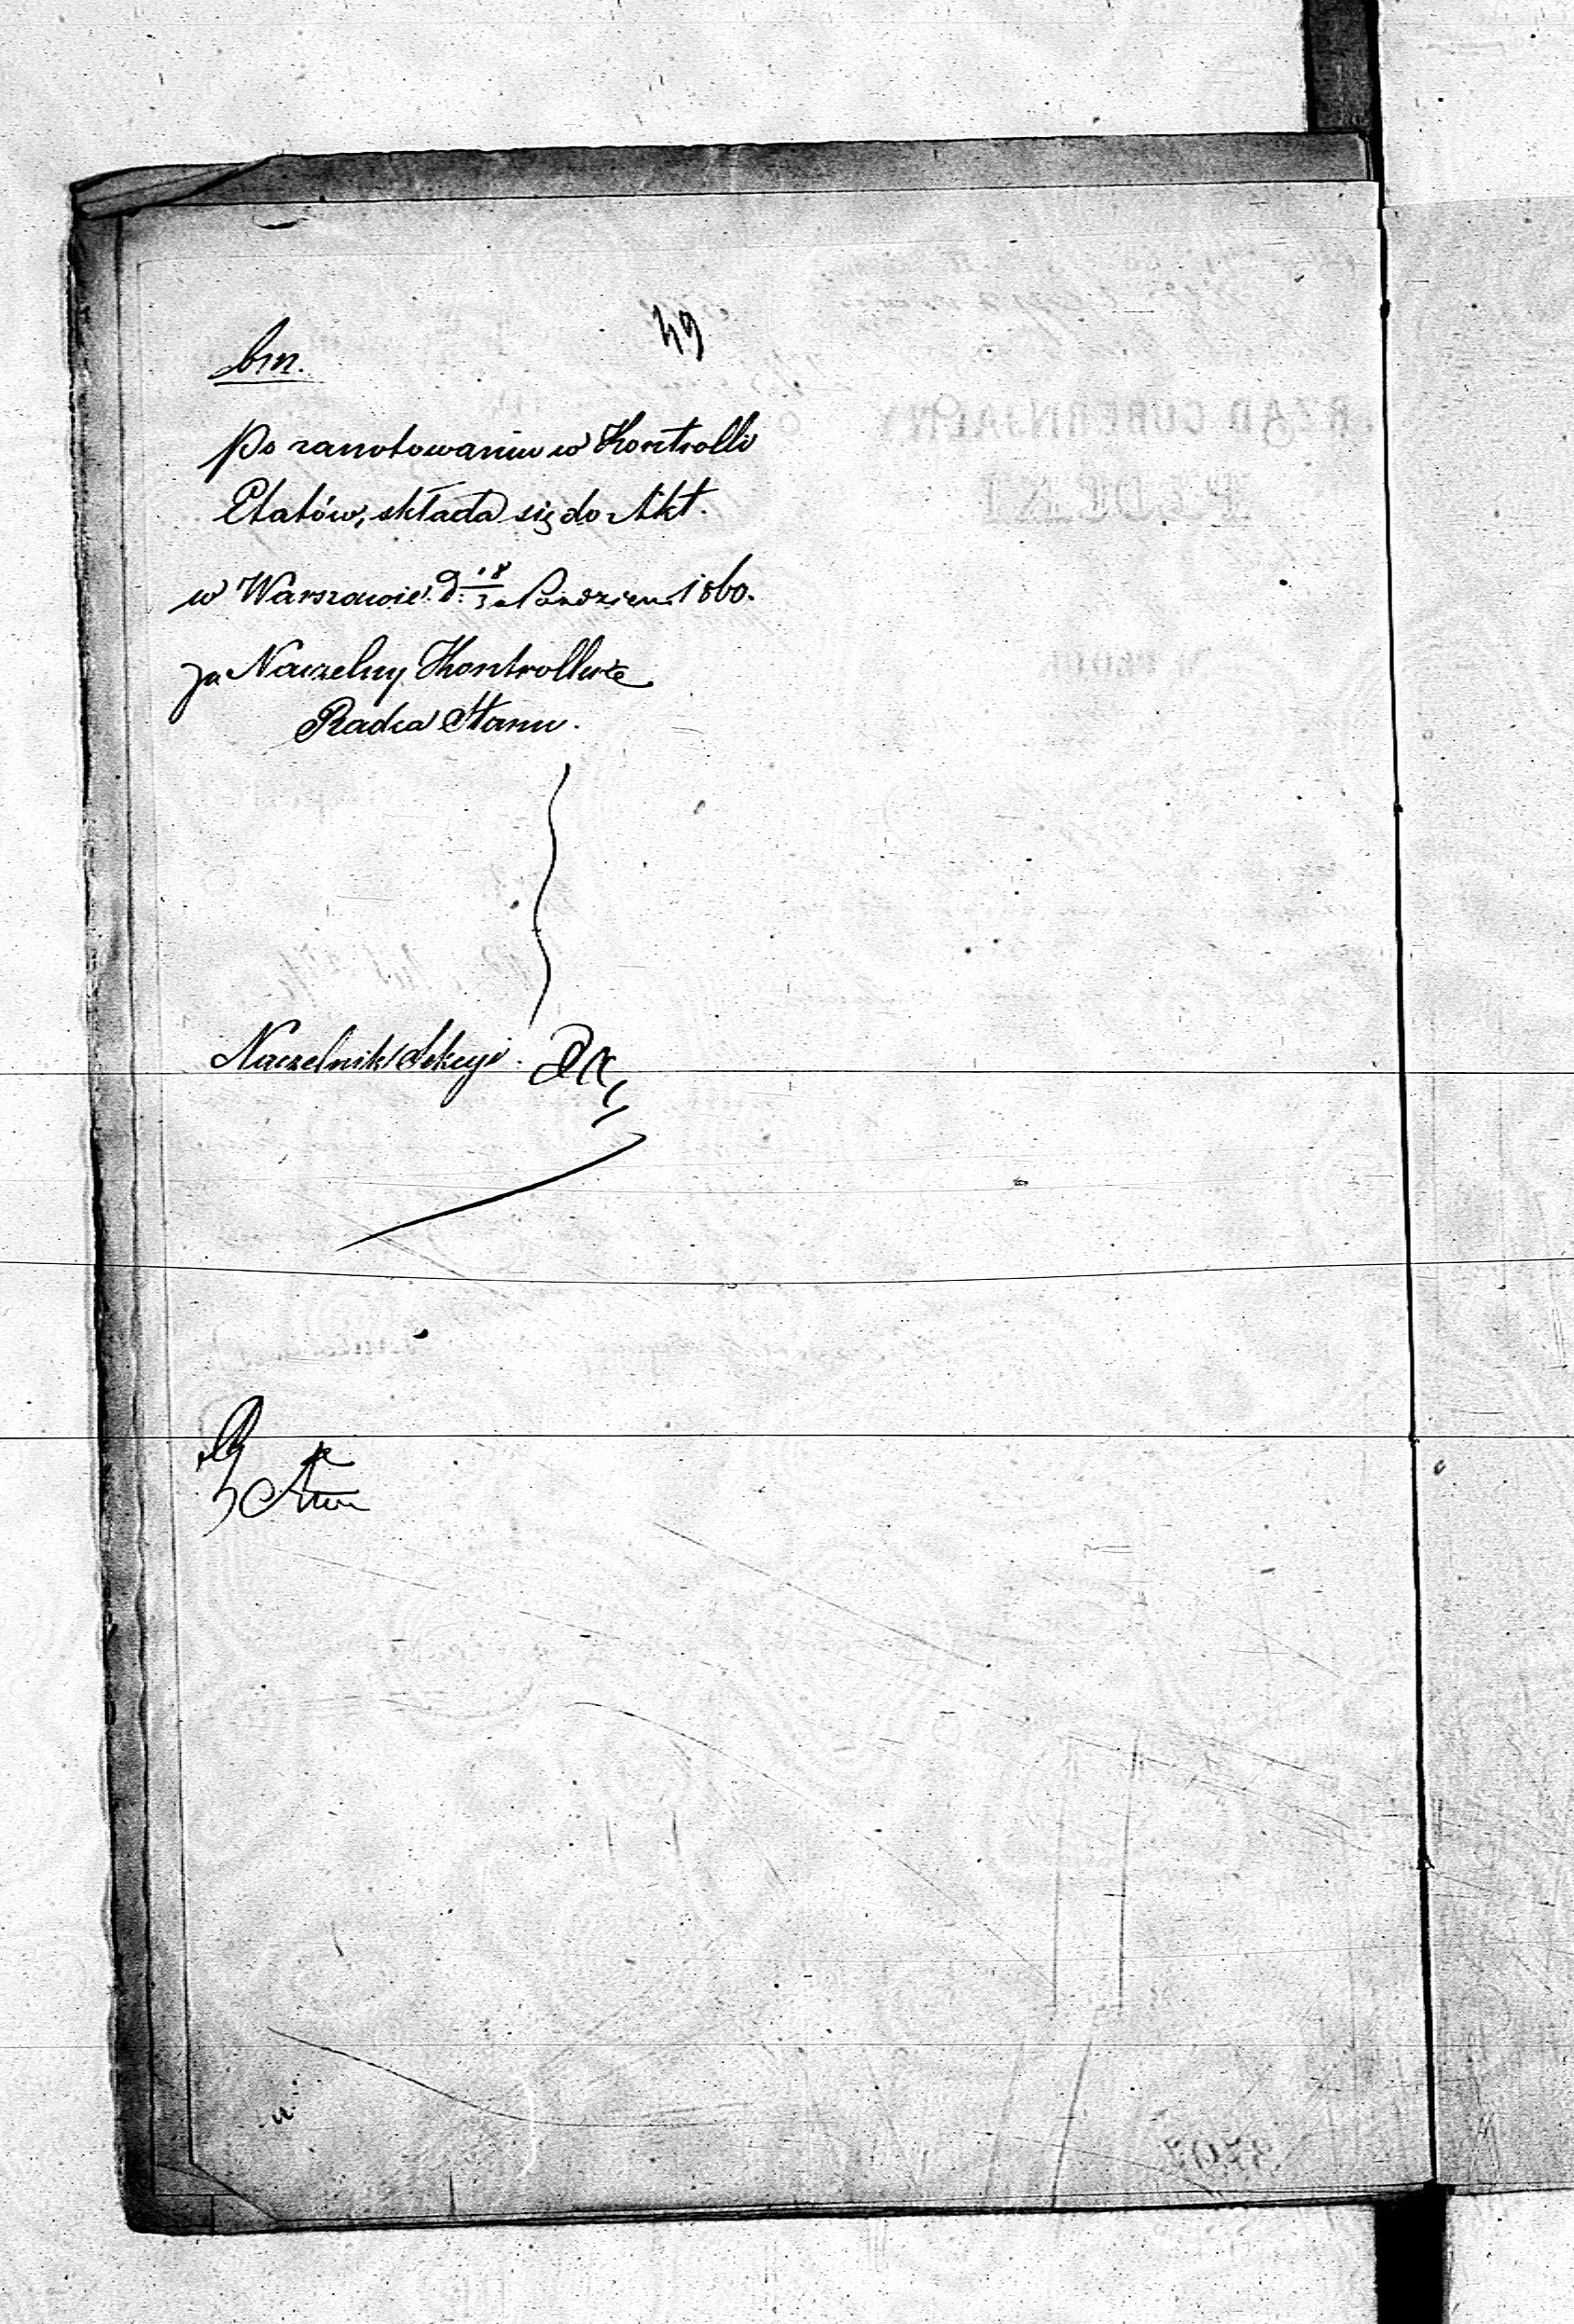 49
bm.
Po zanotowaniu w Kontrolli
Etatów, składa się do Akt.
w Warszawie d. 18/30 Paździer. 1860.
za Naczelny Kontroller
Radca Stanu.
Naczelnik Sekcyi.